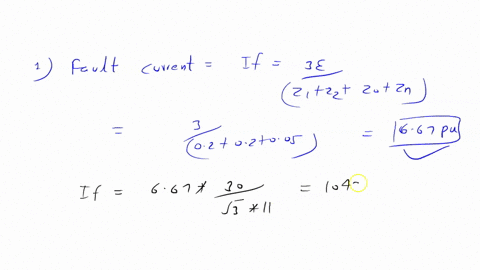 1) Fault current = If = 3E / (Z1+Z2+Z0+Zn)
= 3 / (0.2+0.2+0.05) = 6.67 pu
If = 6.67 * 30 / √3 * 11 = 104